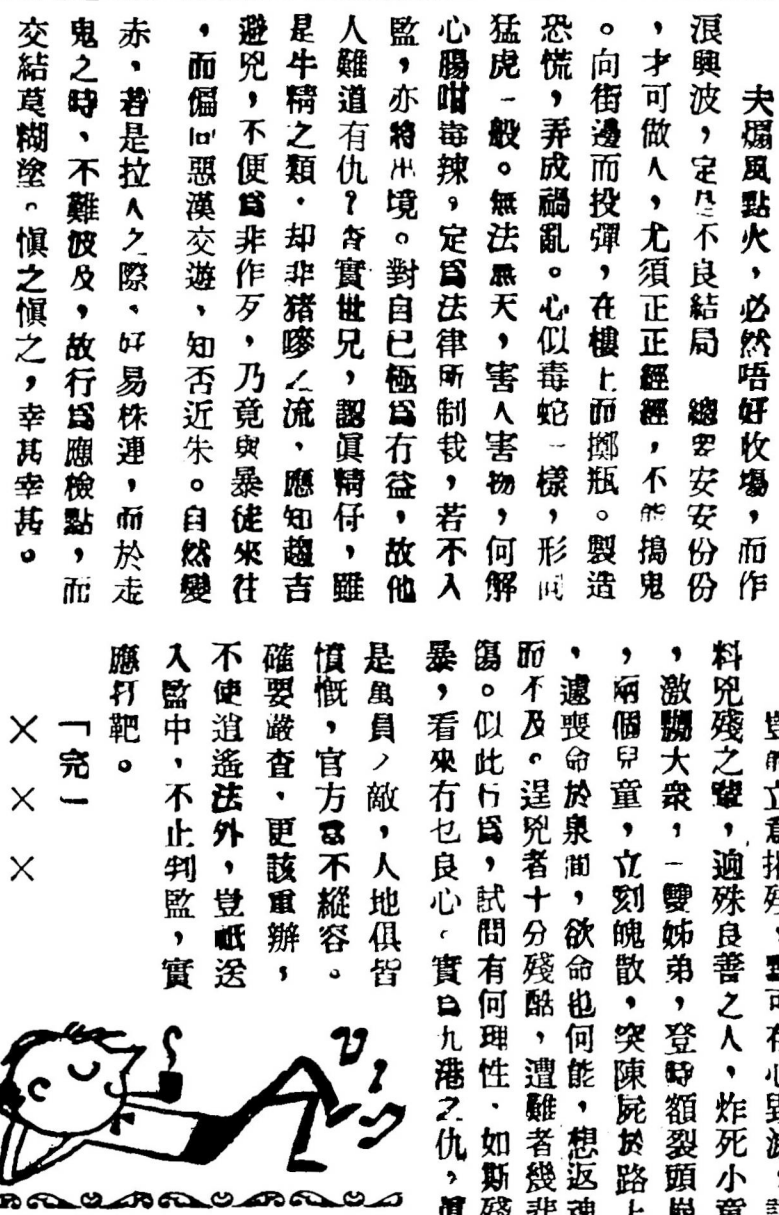 夫煽風點火，必然唔好收塲，而作
浪興波，定是不良結局　總要安安份份
，才可做人，尤須正正經經，不能搗鬼
。向街邊而投彈，在樓上而擲瓶。製造
恐慌，弄成禍亂。心似毒蛇一樣，形同
猛虎一般。無法無天，害人害物，何解
心腸咁毒辣，定爲法律所制裁，若不入
監，亦將出境。對自己極爲冇益，故他
人難道有仇？查實世兄，認眞精仔，雖
是牛精之類．却非猪嘜之流、應知趨吉
避兇，不便爲非作歹，乃竟與暴徒來往
，而偏向惡漢交遊、知否近朱。自然變
赤，若是拉人之際、好易株連，而於走
鬼之時、不難波及，故行爲應檢點，而
交結莫糊塗。愼之愼之，幸甚幸甚。
料兇殘之輩，適殊良善之人，炸死小童
，激嬲大衆，一雙姊弟，登時額裂頭
，兩個兒童，立刻魄散，突陳屍於路上
，遽喪命於泉間，欲命也何能，想返魂
而不及。逞兇者十分殘酷，遭難者幾
傷。似此行爲，試問有何理性．如斯殘
暴，看來冇乜良心。實爲九港之仇，眞
是萬員之敵，人地俱皆
憤慨，官方當不縱容。
確要嚴查．更該重辦，
不使逍遙法外，豈祗送
入監中，不止判監，實
應打靶。
「完」
×××